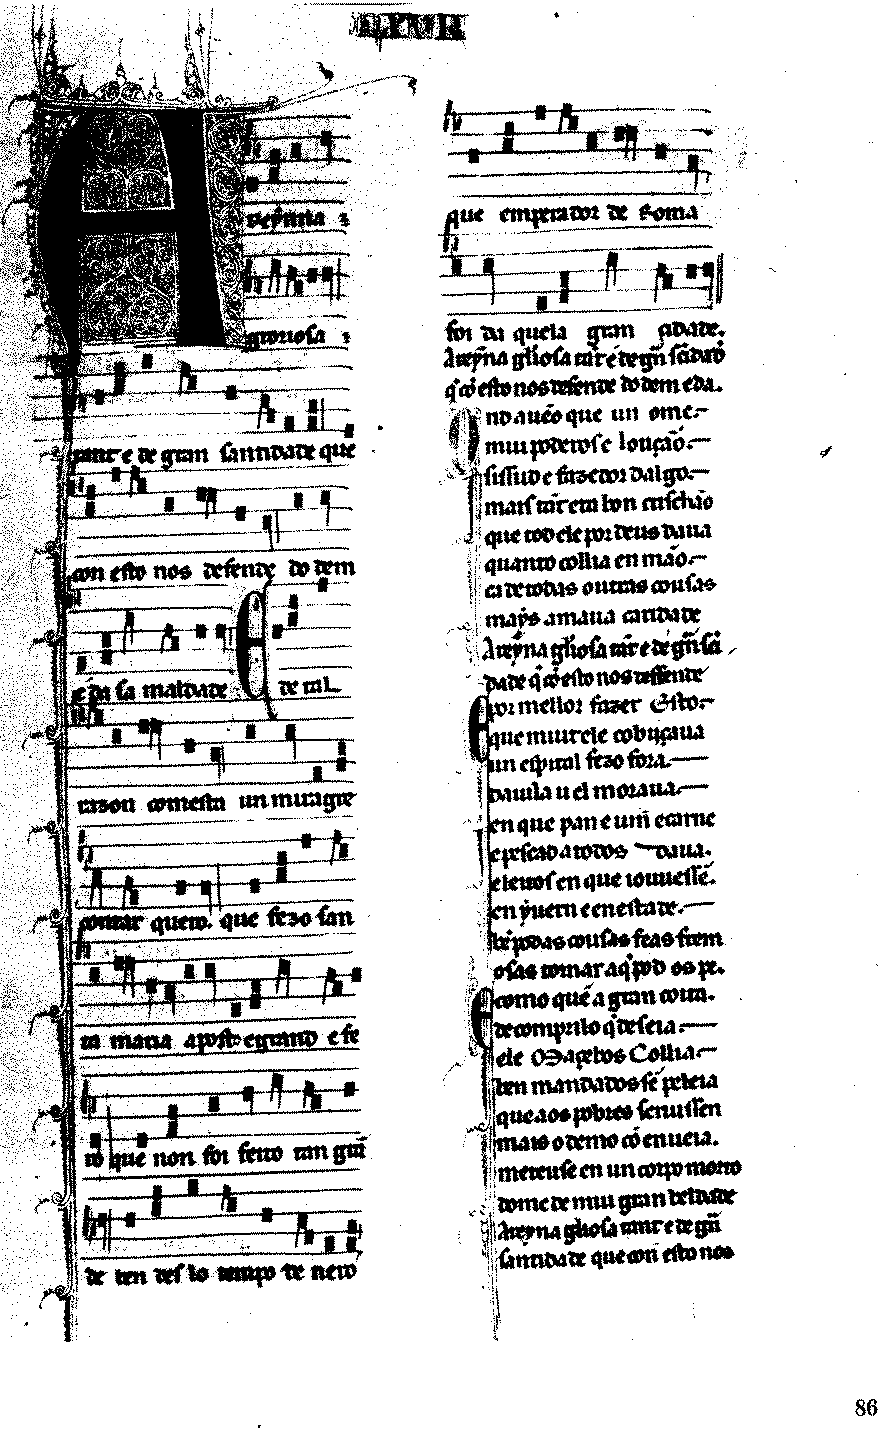 LXVII
A
reỹna
groriosa
tant e de gran santidade que
con esto nos defende do dem
e da sa maldade E de tal
razon com esta un miragre
contar quero. que fezo san
ta maria aposto e grand e fe
ro que non foi feito tan grã
de ben des lo tempo de nero
que emperador de Roma
foi da quela gran çidade.
A reỹna gl̃iosa tãt e de grã sãtidad
q̃ cõ esto nos defende do dem e da.
Ond auẽo que un ome
mui poderos e loução
sisſud e fazedor dalgo
mais tãt era bon crischão
que tod ele por deus daua
quanto collia en mão
ca de todas outras cousas
mays amaua caridade
A reỹna gl̃iosa tãt e de grã sã
dade q̃ cõ esto nos deffende
E por mellor fazer esto
que muit ele cobiiçaua
un espital fezo fora
da uila u el moraua
en que pan e uinn e carne
e pescad a todos daua.
e leitos en que iouuessẽ.
en ýuern e en estade
como quẽ a gran coita.
de comprilo q̃ deseia
ele Mançebos Collia
ben mandados sẽ peleia
que aos pobres seruissen
mais o demo cõ enueia.
meteuse en un corpo morto
dome de mui gran beldade
A reyna gl̃iosa tant e de grã
santidade que con esto nos
86